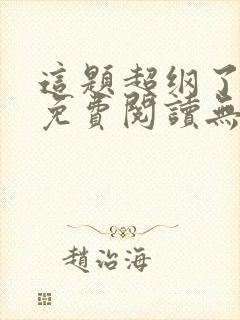 這題超纲了
免費閱讀無
趙治海